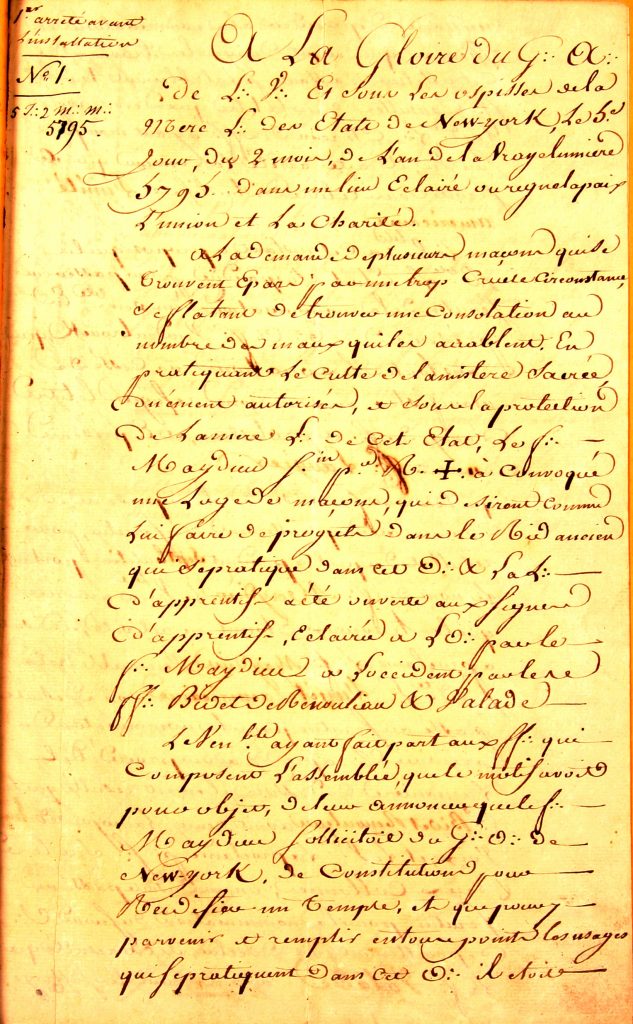 1er arreté avant
L'installation
No 1.
5 J∴ 2 m∴ m∴
5795.
A La Gloire du G∴ A∴
de L∴ J∴ Et sous Les ospisses de la
Mere L∴ des Etats de New-york, Le 5e
Jour, du 2 mois, de L'an de la Vraye lumiere
5795. dans un lieu Eclairé ou regne la paix
L'union et La Charité.
A La demande de plusieurs maçons qui se
trouvent Epars par une trop Cruele Circonstance,
Se flatant de trouver une Consolation au
nombre des maux qui les acablent. En
pratiquant Le Culte de la mistere Sacrée,
duément autorisés, et sous la protection
de La mere L∴ de Cet Etat, Le f∴
Maydieu R. ✝. à Convoqué
une Loge de maçons, qui desirent Comme
Lui faire de progrèts dans le Rid ancien
qui se pratique dans cet O∴ & La L∴
d'apprentifs a été ouverte aux signes
d'apprentifs, Eclairée a L'O∴ par le
f∴ Maydieu a L'occident par les
ff∴ Bidet de Renouleau & Palade
Le Ven.ble ayant fait part aux ff∴ qui
Composent L'assemblée, que le motif avoit
pour objet, de leur annoncer que le f∴
Maydieu sollicitoit du G∴ O∴ de
New-york, de Constitutions pour
Redifier un Temple, et que pour y
parvenir et remplir en tous points les usages
qui se pratiquent dans cet O∴ il etoit